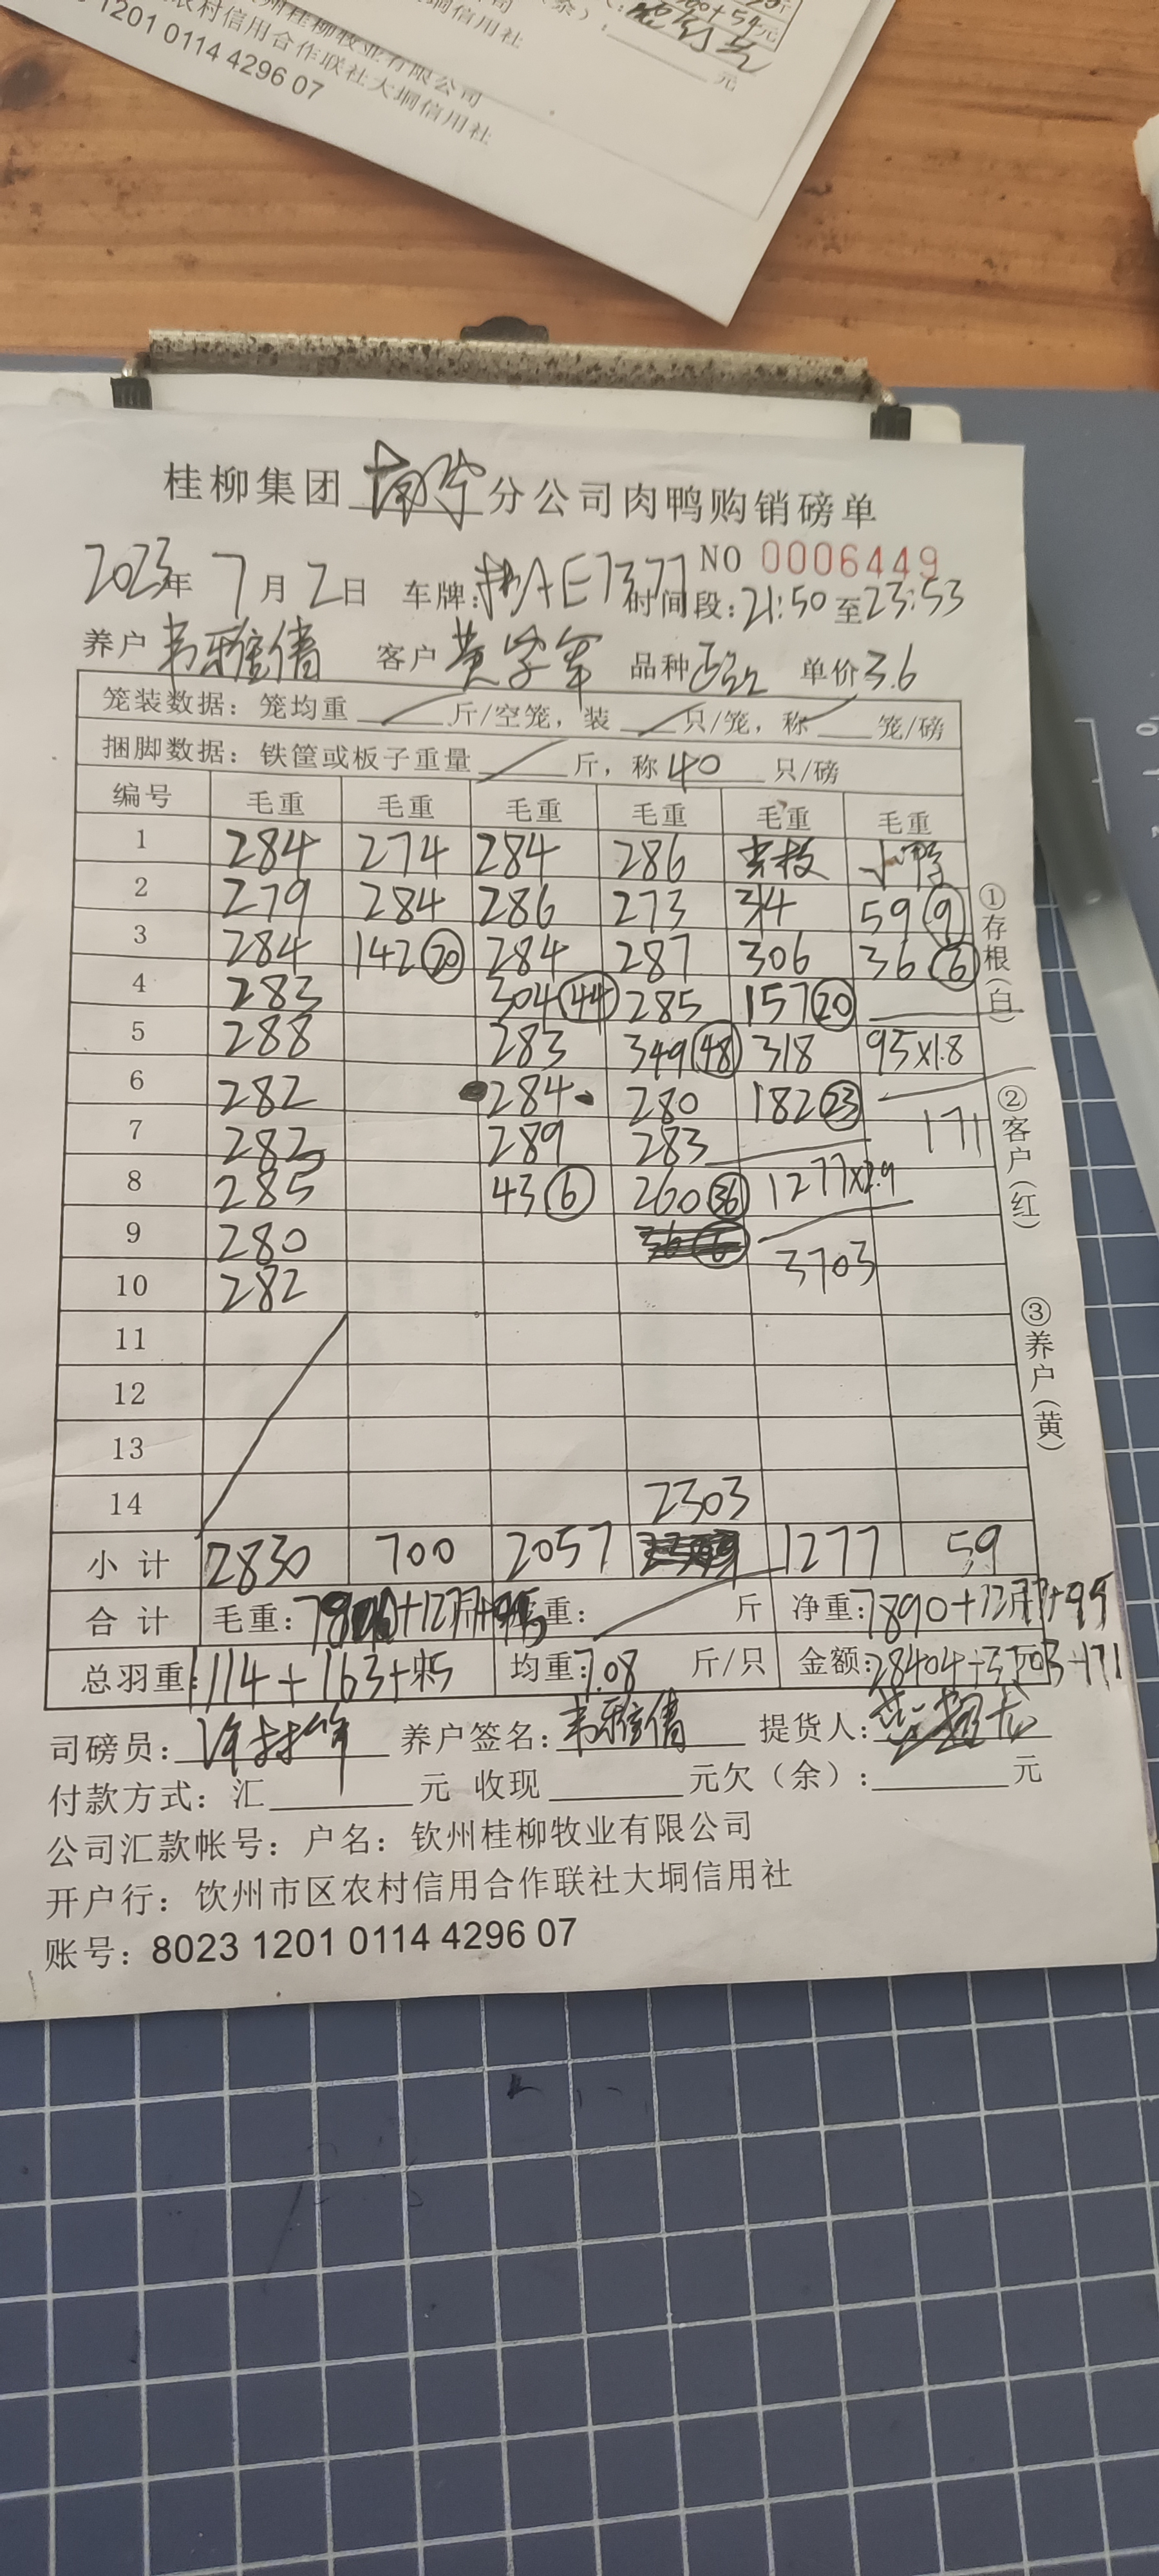 1201 0114 4296 07
州桂柳牧业有限公司
农村信用合作联社大垌信用社
垌信用社
元
桂柳集团南宁分公司肉鸭购销磅单
NO 0006449
2023年 7月 2日 车牌: AE7377 时间段:21:50至23:53
养户 韦雅倩 客户 黄学军 品种 单价3.6
笼装数据: 笼均重 斤/空笼, 装 只/笼, 称 笼/磅
捆脚数据: 铁筐或板子重量 斤, 称40 只/磅
编号 毛重 毛重 毛重 毛重 毛重 毛重
1 284 274 284 286 小鸭
2 279 284 286 273 314 59⑨
3 284 142⑳ 284 287 306 36⑥
4 283 304㊹ 285 157⑳
5 288 283 349(48) 318 95×1.8
6 282 284 280 182㉓
171
7 282 289 283
8 285 43⑥ 260㊱ 1277×2.9
9 280
3703
10 282
11
12
13
14 2303
小计 2830 700 2057 1277 59
合计 毛重: +1277+95 重: 斤 净重:7890+1277+95
总羽重:1114+163+15 均重:7.08 斤/只 金额:28404+3703+171
司磅员: 养户签名:韦雅倩 提货人:
付款方式: 汇 元 收现 元欠(余): 元
公司汇款帐号: 户名: 钦州桂柳牧业有限公司
开户行: 钦州市区农村信用合作联社大垌信用社
账号: 8023 1201 0114 4296 07
①存根(白)
②客户(红)
③养户(黄)